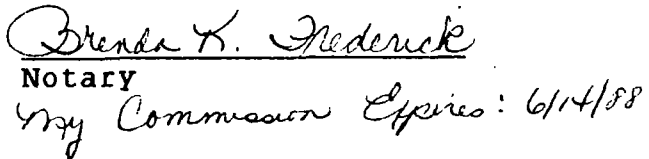 Brenda K. Frederick
Notary
My Commission Expires: 6/14/88